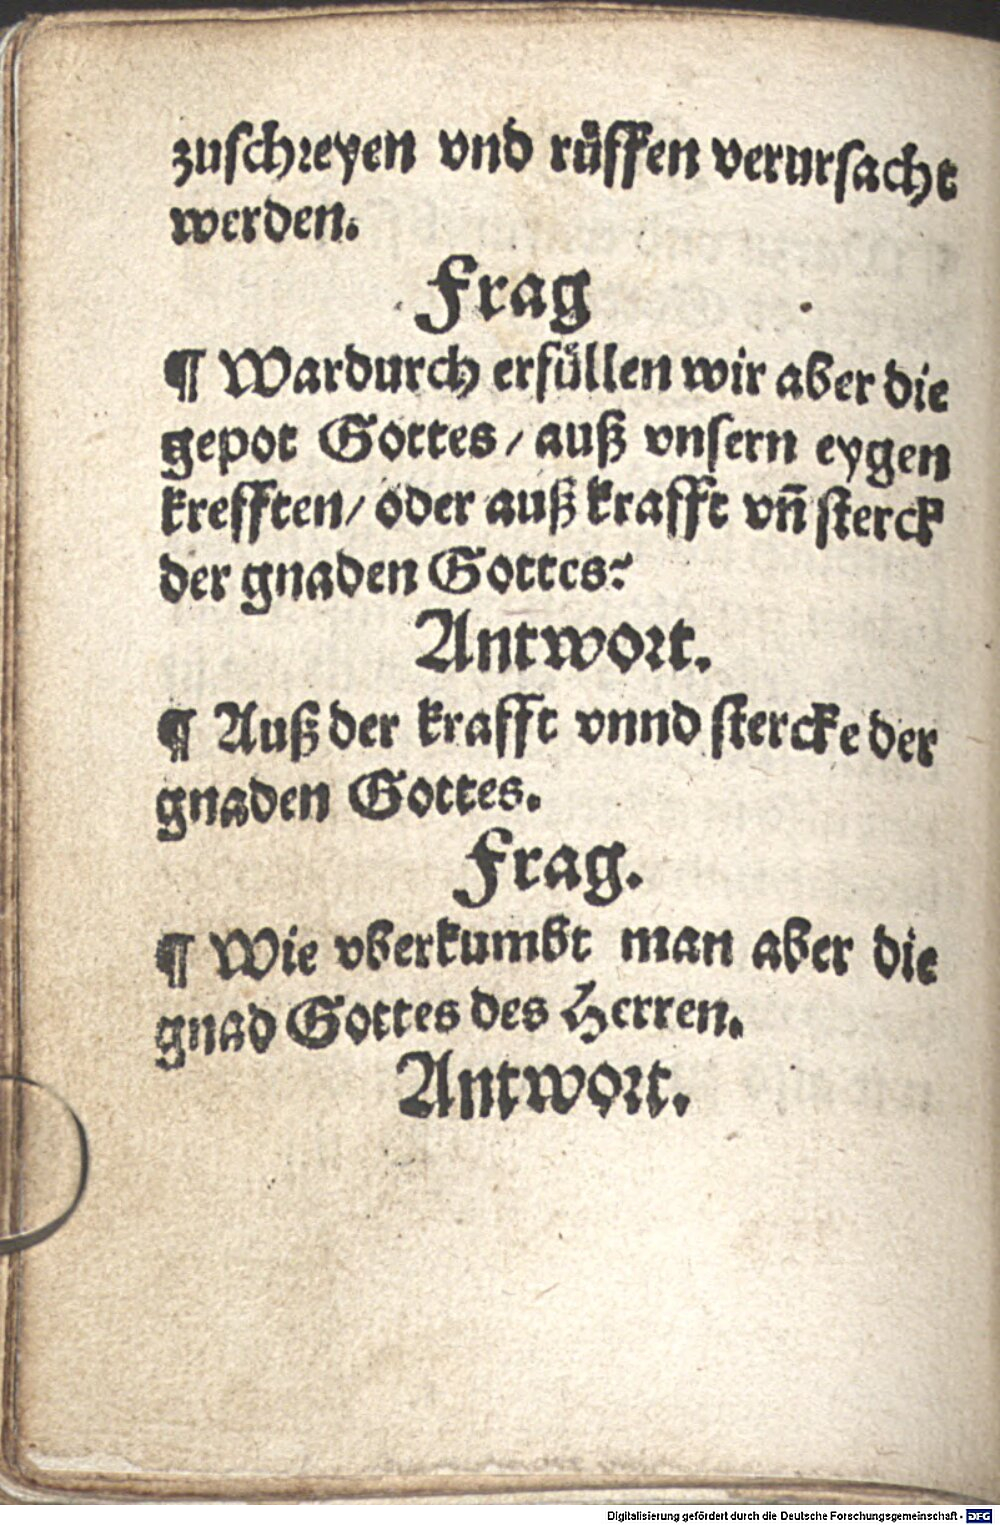 zuschreyen vnd rüffen verursacht
werden.
Frag
¶ Wardurch erfüllen wir aber die
gepot Gottes / auß vnsern eygen
krefften / oder auß krafft vn̄ sterck
der gnaden Gottes?
Antwort.
¶ Auß der krafft vnnd stercke der
gnaden Gottes.
Frag.
¶ Wie vberkumbt man aber die
gnad Gottes des Herren.
Antwort.
Digitalisierung gefördert durch die Deutsche Forschungsgemeinschaft - DFG